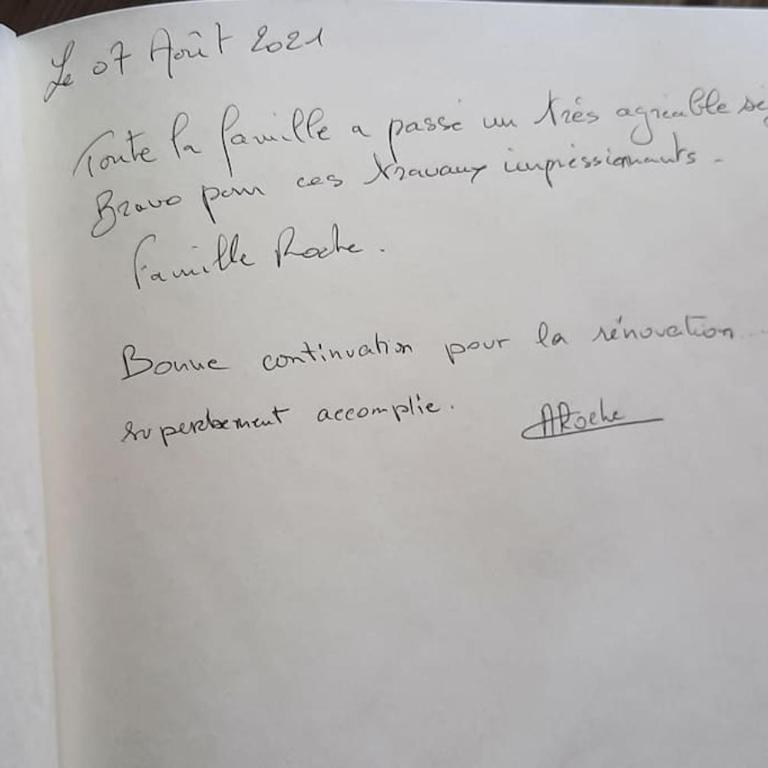 Le 07 Août 2021
Toute la famille a passé un très agréable sé
Bravo pour ces travaux impréssionnants.
Famille Roche.
Bonne continuation pour la rénovation
superbement accomplie. ARoche